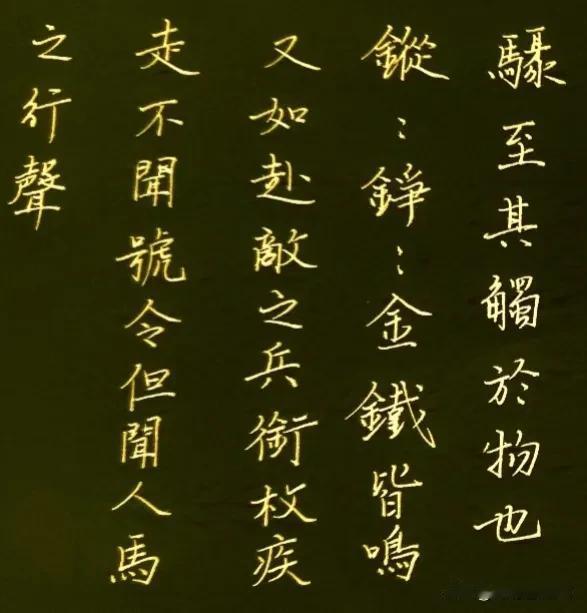 驟至其觸於物也
鏦〻錚〻金鐵皆鳴
又如赴敵之兵銜枚疾
走不聞號令但聞人馬
之行聲